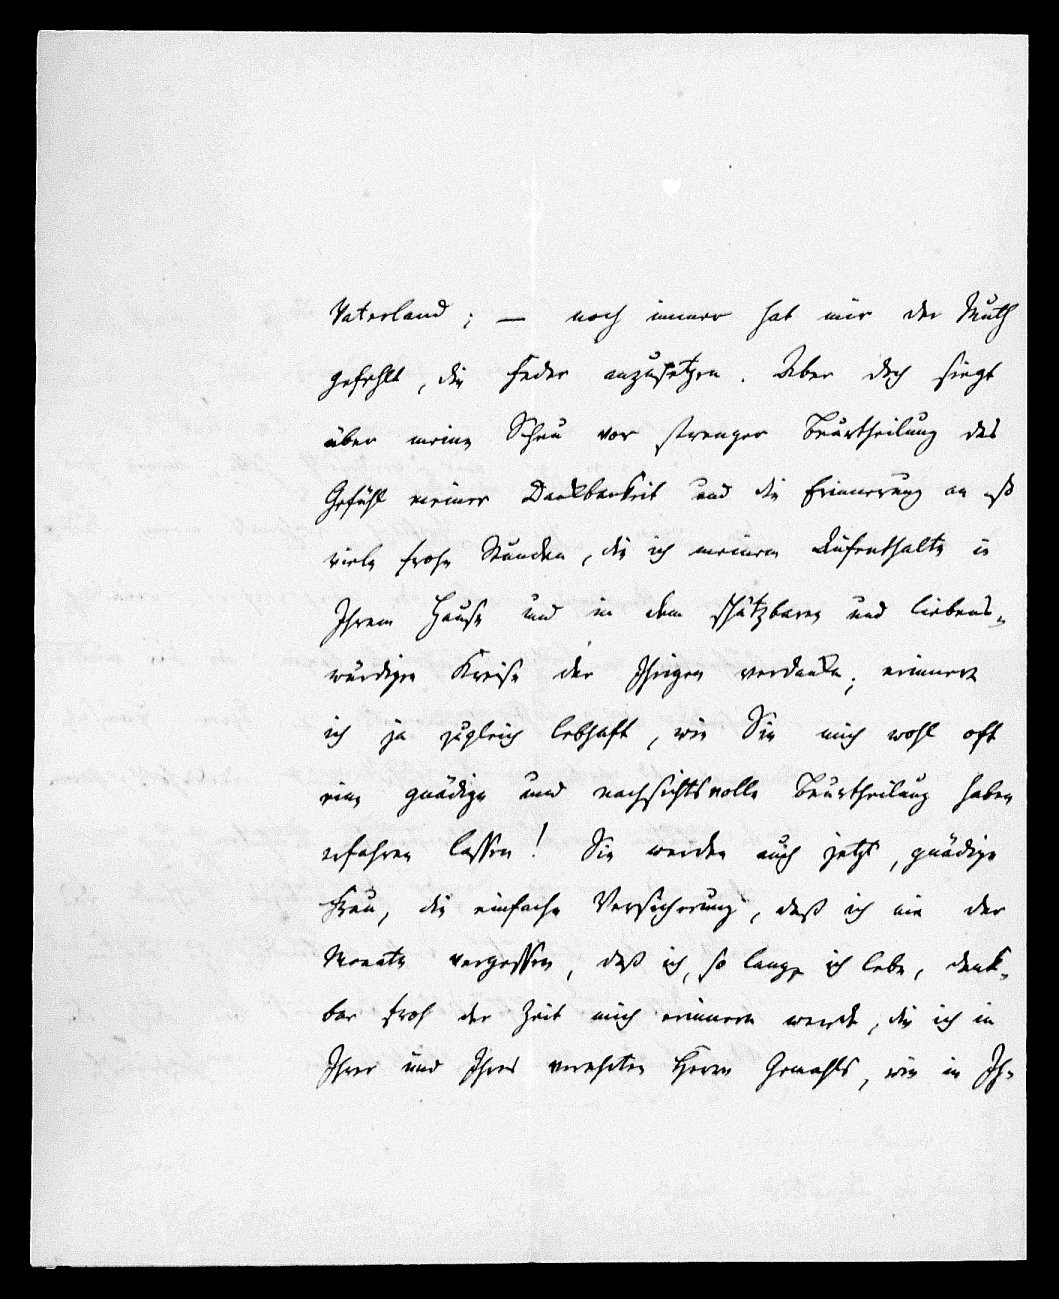 Vaterland; — noch immer hat mir der Muth
gefehlt, die Feder anzusetzen. Aber doch siegt
über meine Scheu vor strenger Beurtheilung das
Gefühl meiner Dankbarkeit und die Erinnerung an
viele frohe Stunden, die ich meinem Aufenthalte in
Ihrem Hause und in dem schätzbaren und liebens-
würdigen Kreise der Ihrigen verdanke; erinnere
ich ja zugleich lebhaft, wie Sie mich wohl oft
eine gnädige und nachsichtsvolle Beurtheilung haben
erfahren lassen! Sie werden auch jetzt, gnädige
Frau, die einfache Versicherung, daß ich nie der
Monate vergessen, daß ich, so lange ich lebe, dank-
bar froh der Zeit mich erinnern werde, die ich in
Ihrer und Ihres verehrten Herrn Gemahls, wie in Ih-